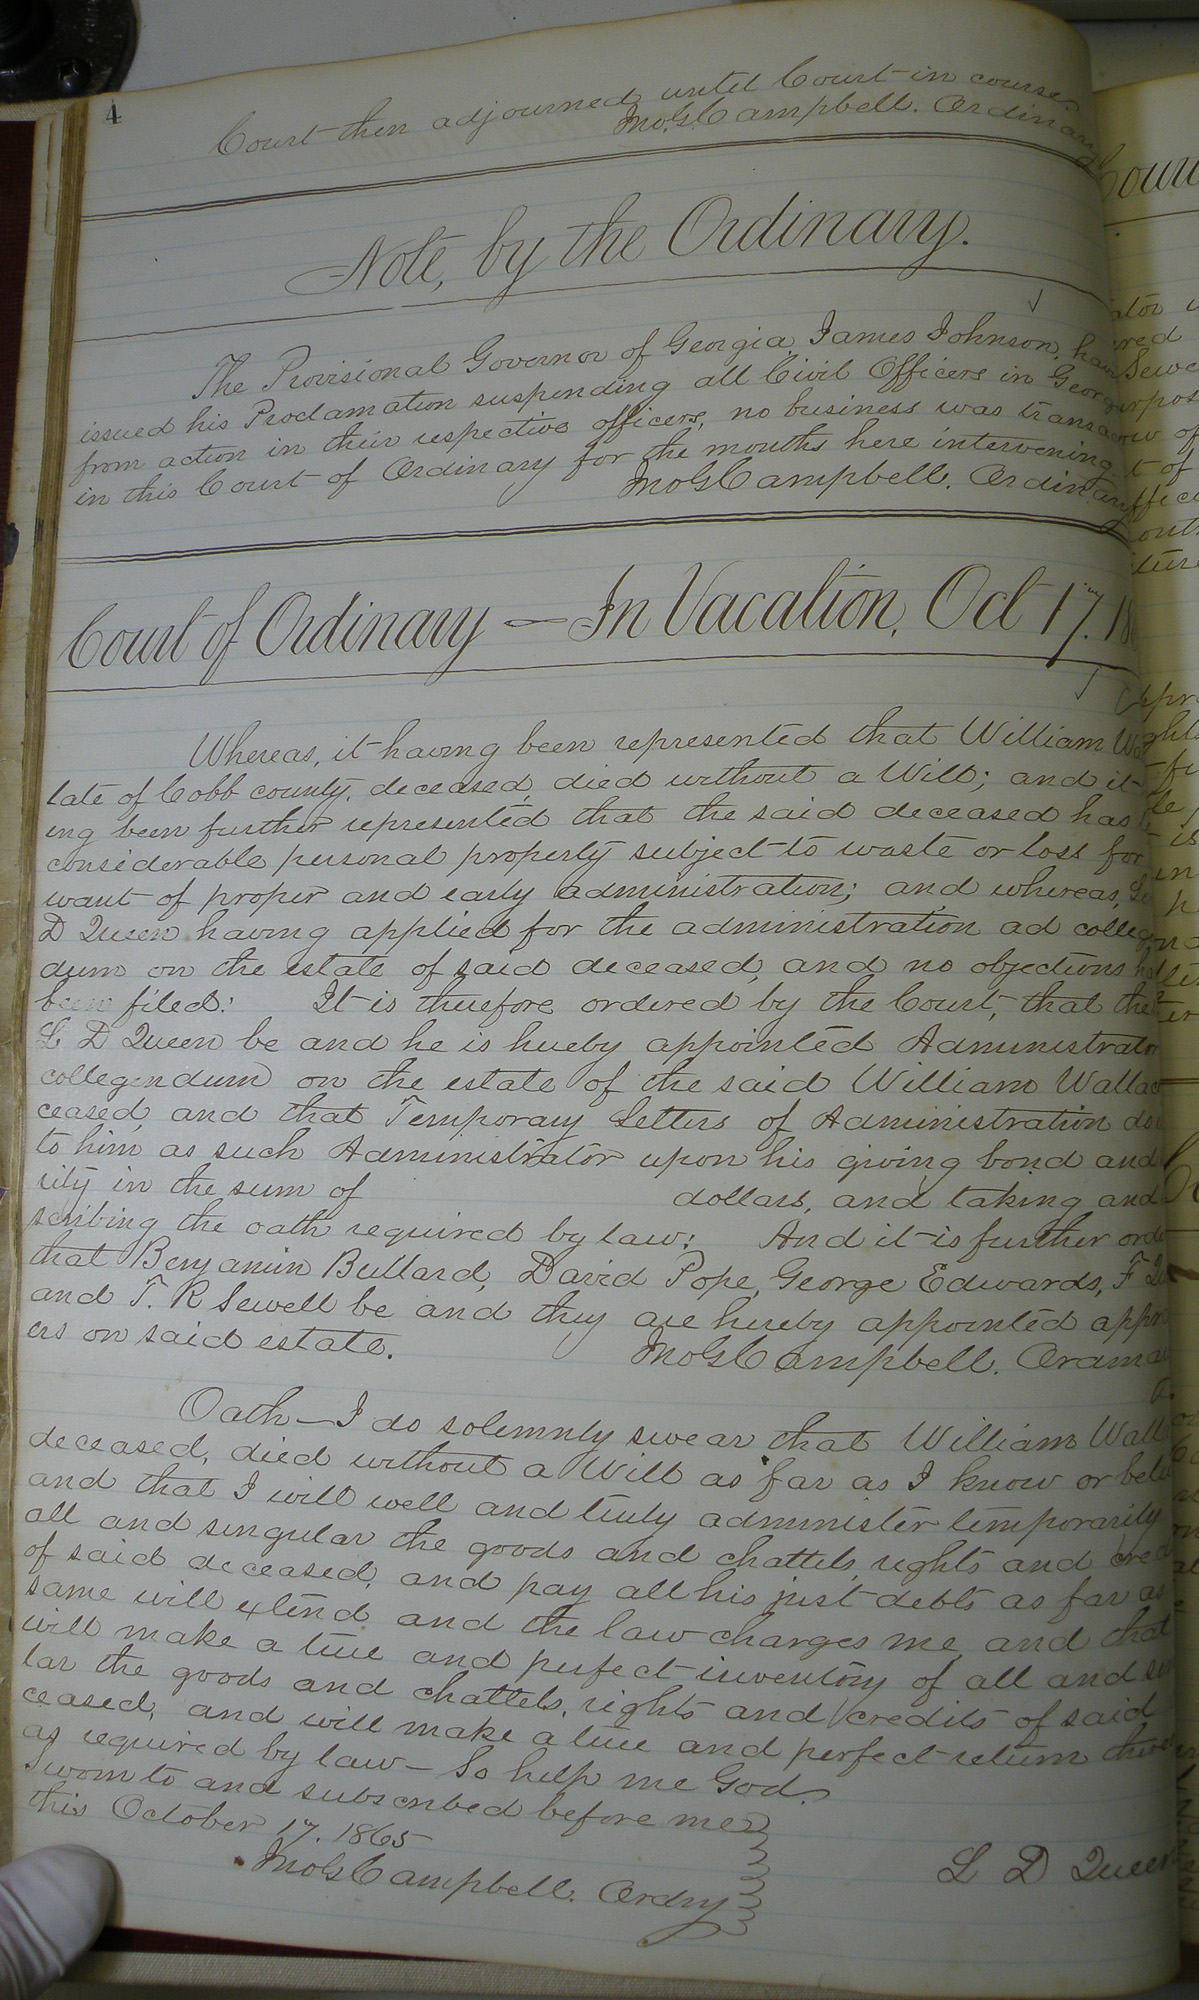 4
Court then adjourned until Court in course.
Jno. G. Campbell. Ordinary
Note, by the Ordinary.
The Provisional Governor of Georgia James Johnson, hav
issued his Proclamation suspending all Civil Officers in Georg
from action in their respective officers, no business was transac
in this Court of Ordinary for the months here intervening
Jno G Campbell. Ordinary
Court of Ordinary — In Vacation, Oct 17. 18
Whereas, it having been represented that William Wa
late of Cobb county, deceased, died without a Will; and it
ing been further represented that the said deceased has
considerable personal property subject to waste or loss for
want of proper and early administration; and whereas,
D Queen having applied for the administration ad collegen
dum on the estate of said deceased, and no objections ha
been filed: It is therefore ordered by the Court, that the
L D Queen be and he is hereby appointed Administrator
collegendum on the estate of the said William Wallac
ceased, and that Temporary Letters of Administration do
to him as such Administrator upon his giving bond and
rity in the sum of dollars, and taking and
scribing the oath required by law: And it is further orde
that Benjamin Bullard, David Pope, George Edwards, F Qu
and T. R Sewell be and they are hereby appointed appr
ers on said estate. Jno G Campbell. Ordinar
Oath — I do solemnly swear that William Wall
deceased, died without a Will as far as I know or beli
and that I will well and truly administer temporarily
all and singular the goods and chattels, rights and cred
of said deceased, and pay all his just debts as far as
same will extend and the law charges me, and that
will make a true and perfect inventory of all and sin
lar the goods and chattels, rights and credits of said
ceased, and will make a true and perfect return there
as required by law — So help me God.
Sworn to and subscribed before me
this October 17. 1865
Jno G Campbell. Ordry
L D Queen